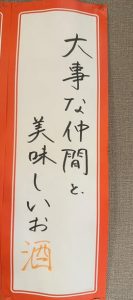 大事な仲間と、
美味しいお酒